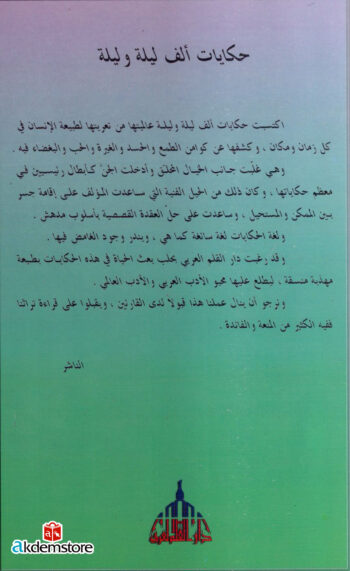 حكايات ألف ليلة وليلة
اكتسبت حكايات ألف ليلة وليلة عالميتها من تعريتها لطبيعة الإنسان في
كل زمان ومكان ، وكشفها عن كوامن الطمع والحسد والغيرة والحب والبغضاء فيه .
وهي غلبت جانب الخيال المحلق وأدخلت الجن كأبطال رئيسيين في
معظم حكاياتها ، وكان ذلك من الحيل الفنية التي ساعدت المؤلف على إقامة جسر
بين الممكن والمستحيل ، وساعدت على حل العقدة القصصية بأسلوب مدهش .
ولغة الحكايات لغة سائغة كما هي ، ويندر وجود الغامض فيها .
وقد رغبت دار القلم العربي بحلب بعث الحياة في هذه الحكايات بطبعة
مهذبة منسقة ، ليطلع عليها محبو الأدب العربي والأدب العالمي .
ونرجو أن ينال عملنا هذا قبولا لدى القارئين ، ويقبلوا على قراءة تراثنا
ففيه الكثير من المتعة والفائدة .
الناشر
akdemstore